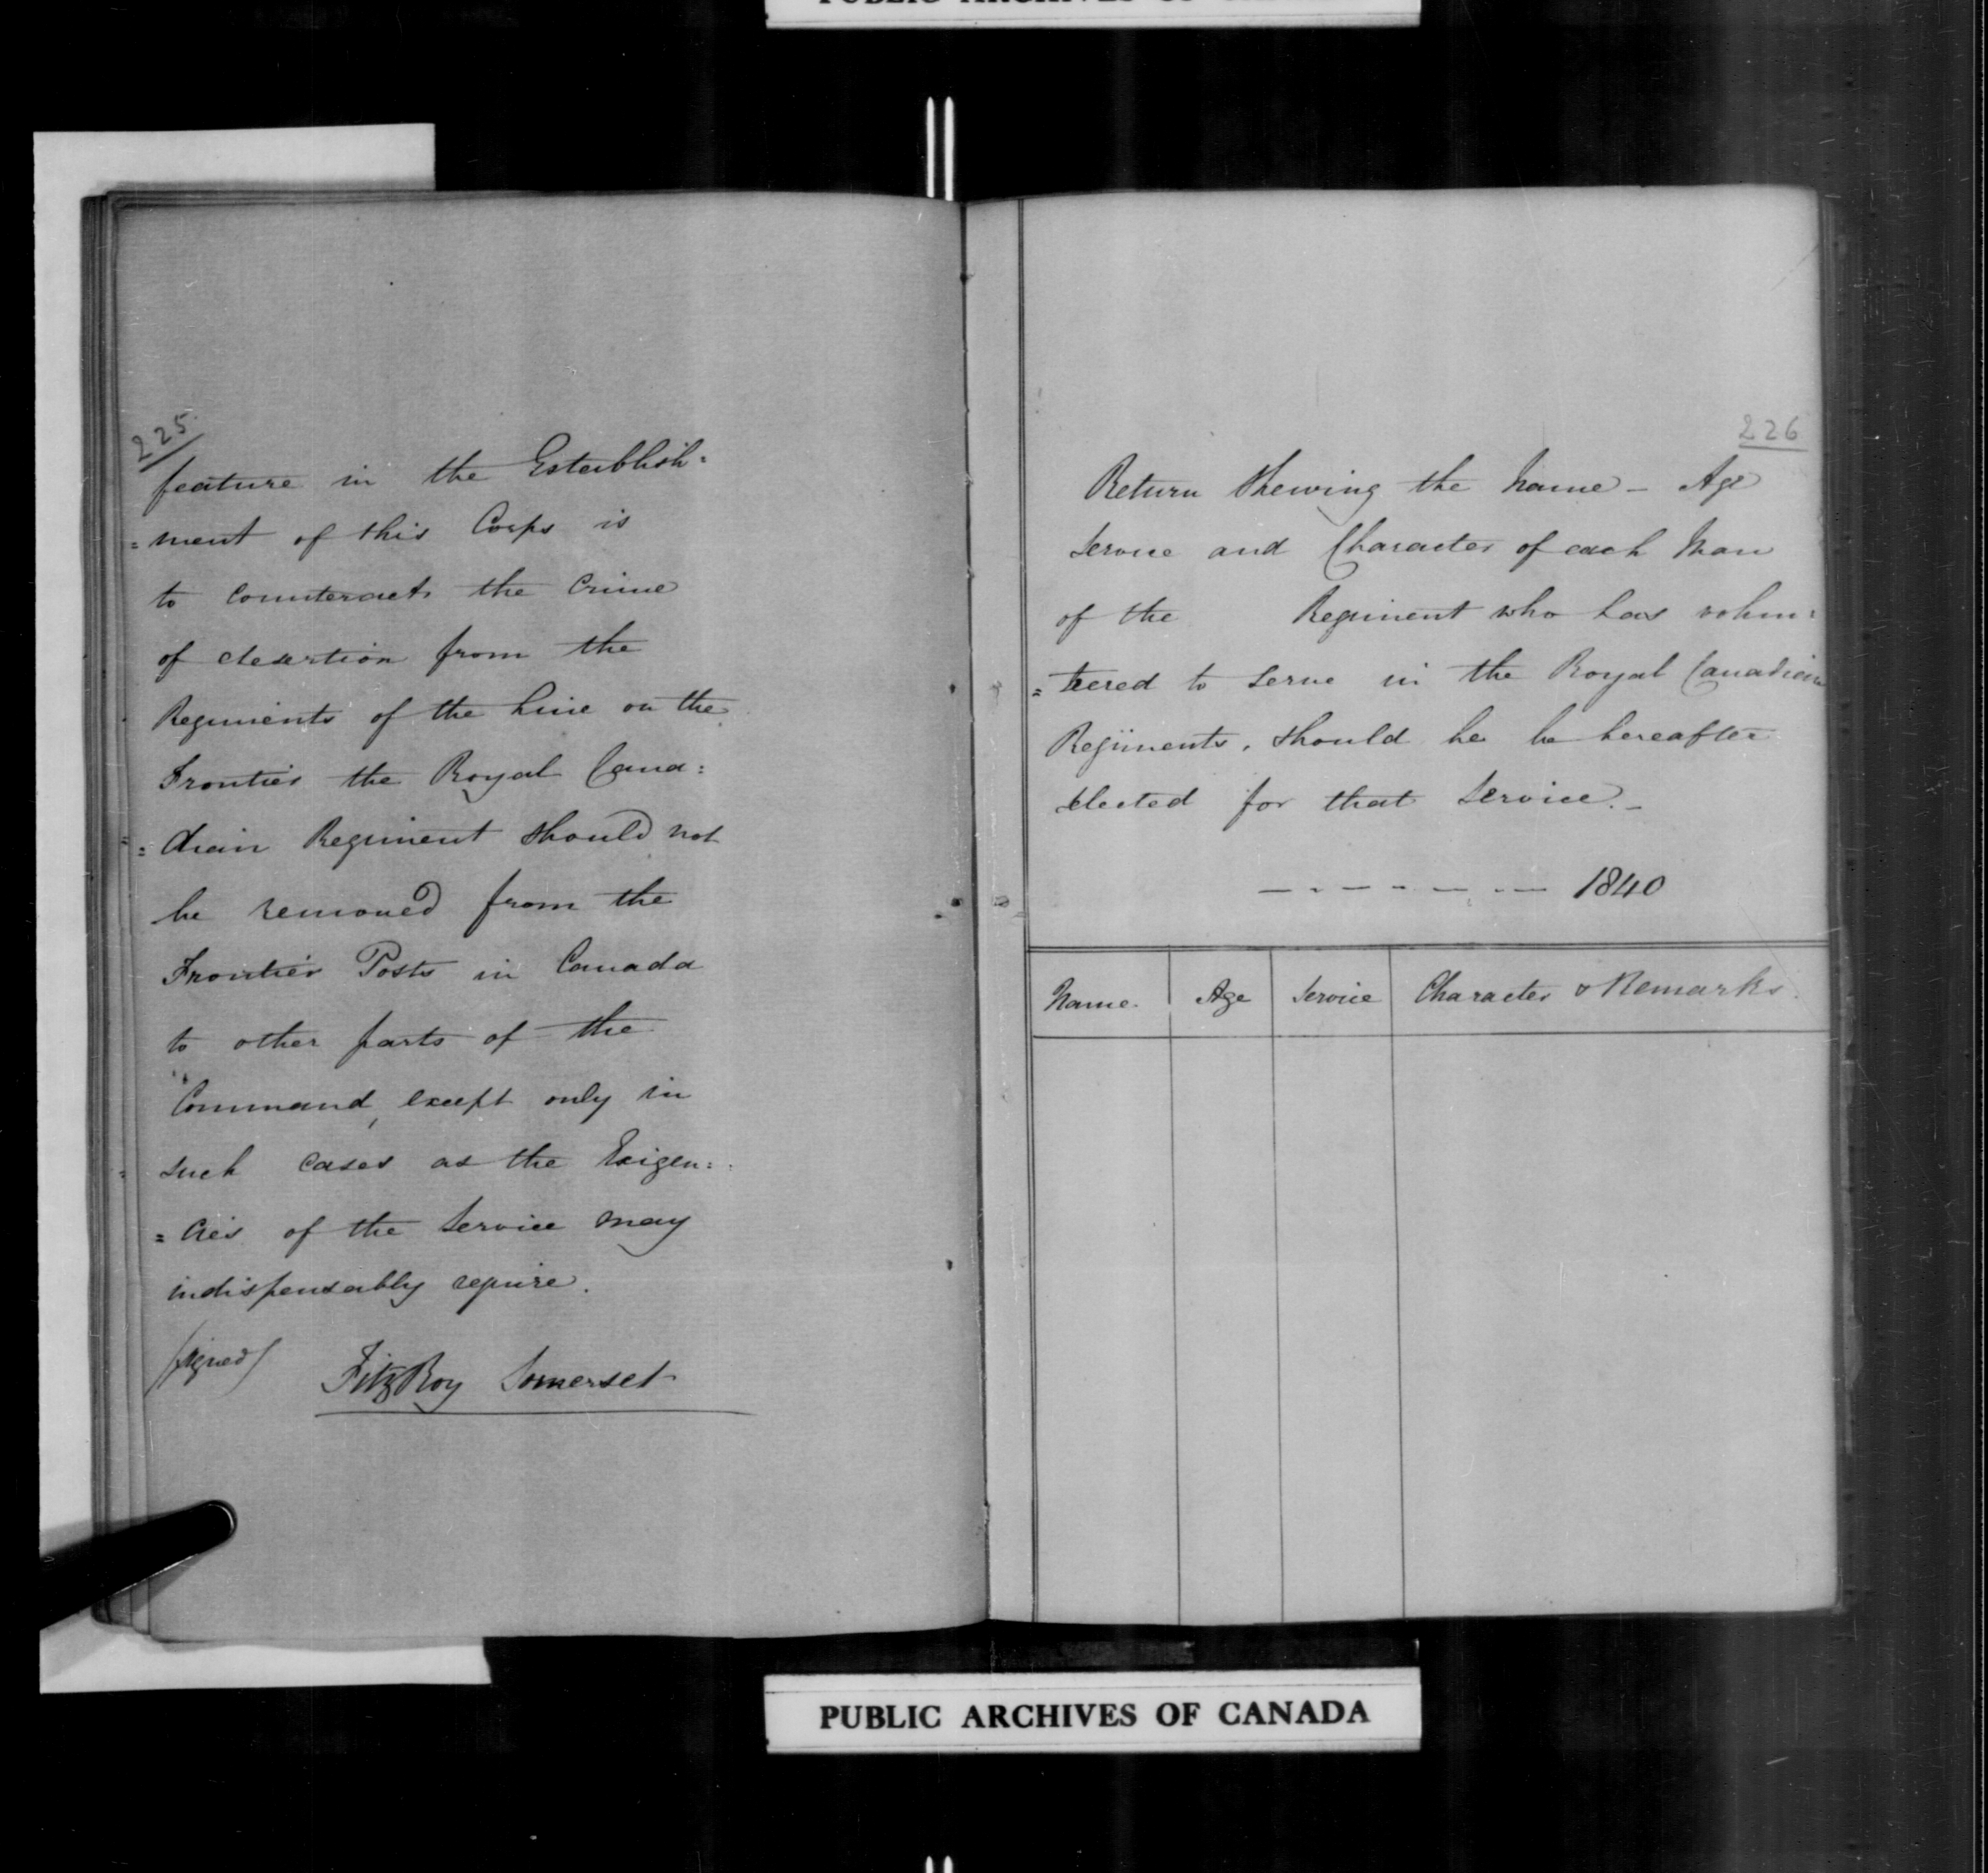 225
feature in the Establish=
=ment of this Corps is
to counteract the Crime
of desertion from the
Regiments of the Line on the
Frontier the Royal Cana=
=dian Regiment should not
be removed from the
Frontier Posts in Canada
to other parts of the
Command, except only in
such cases as the Exigen=
=cies of the Service may
indispensably require.
(signed) FitzRoy Somerset
226
Return Shewing the Name - Age
Service and Character of each Man
of the Regiment who has volun=
=teered to serve in the Royal Canadian
Regiments, should he be hereafter
selected for that Service. -
- - - - - - - 1840
Name. Age Service Character & Remarks.
PUBLIC ARCHIVES OF CANADA